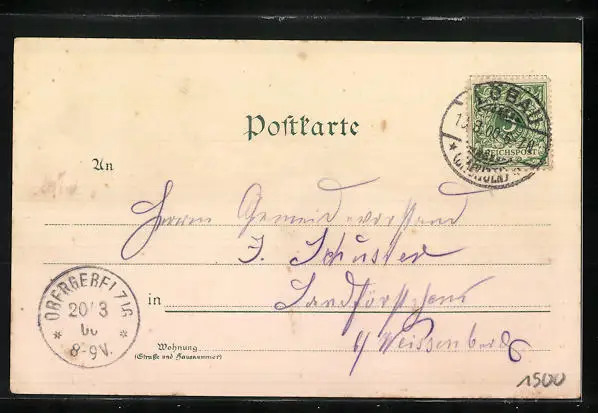 LÖBAU
REICHSPOST
(SACHSEN)
Postkarte
An
Herrn Gemeindevorstand
J. Schuster
in
OBERGEBELZIG
20/3
00
8-9V.
Wohnung
(Straße und Hausnummer)
b/ Weissenberg
1500